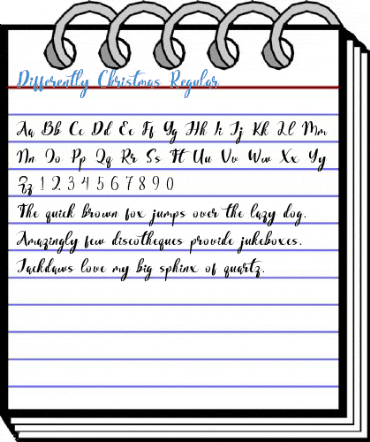 Differently Christmas Regular
Aa Bb Cc Dd Ee Ff Gg Hh Ii Jj Kk Ll Mm
Nn Oo Pp Qq Rr Ss Tt Uu Vv Ww Xx Yy
Zz 1 2 3 4 5 6 7 8 9 0
The quick brown fox jumps over the lazy dog.
Amazingly few discotheques provide jukeboxes.
Jackdaws love my big sphinx of quartz.